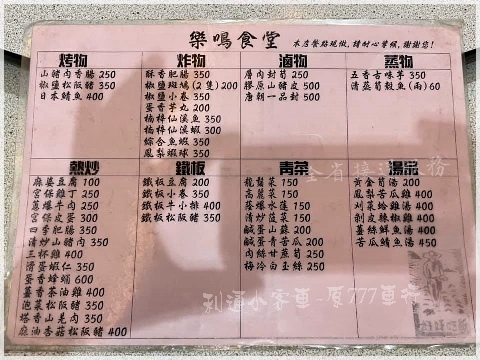 樂鳴食堂
本店餐點現做,請耐心等候,謝謝您!
烤物
山豬肉香腸 250
椒鹽松阪豬 350
日本鯖魚 400
炸物
酥香肥腸 350
椒鹽斑鳩(2隻)200
椒鹽小卷 350
蛋香芋丸 200
橘檸仙溪魚 350
橘檸仙溪蝦 300
綜合魚蝦 350
鳳梨蝦球 350
滷物
層肉封筍 250
膠原山豬皮 200
唐朝一品封 500
蒸物
五香古味芋 350
清蒸筍殼魚(兩)60
熱炒
麻婆豆腐 100
宮保雞丁 250
蔥爆牛肉 250
宮保皮蛋 300
四季肥腸 350
清炒山豬肉 350
三杯雞 400
滑蛋蝦仁 350
蛋香蜂蛹 600
薑香茶油雞 400
泡菜松阪豬 400
塔香山羌肉 350
麻油杏菇松阪豬 400
鐵板
鐵板豆腐 200
鐵板小卷 350
鐵板牛小排 400
鐵板松阪豬 350
青菜
龍鬚菜 150
高麗菜 150
蔭爆水蓮 150
清炒菠菜 150
鹹蛋山蘇 200
鹹蛋青苦瓜 200
肉絲甘藍筍 250
梅冷白玉絲 250
湯品
黃金筍湯 200
鳳梨苦瓜雞 400
刈菜蛤雞湯 400
剝皮辣椒雞 400
薑絲鮮魚湯 400
苦瓜鯖魚湯 450
利通小客車-原777車行